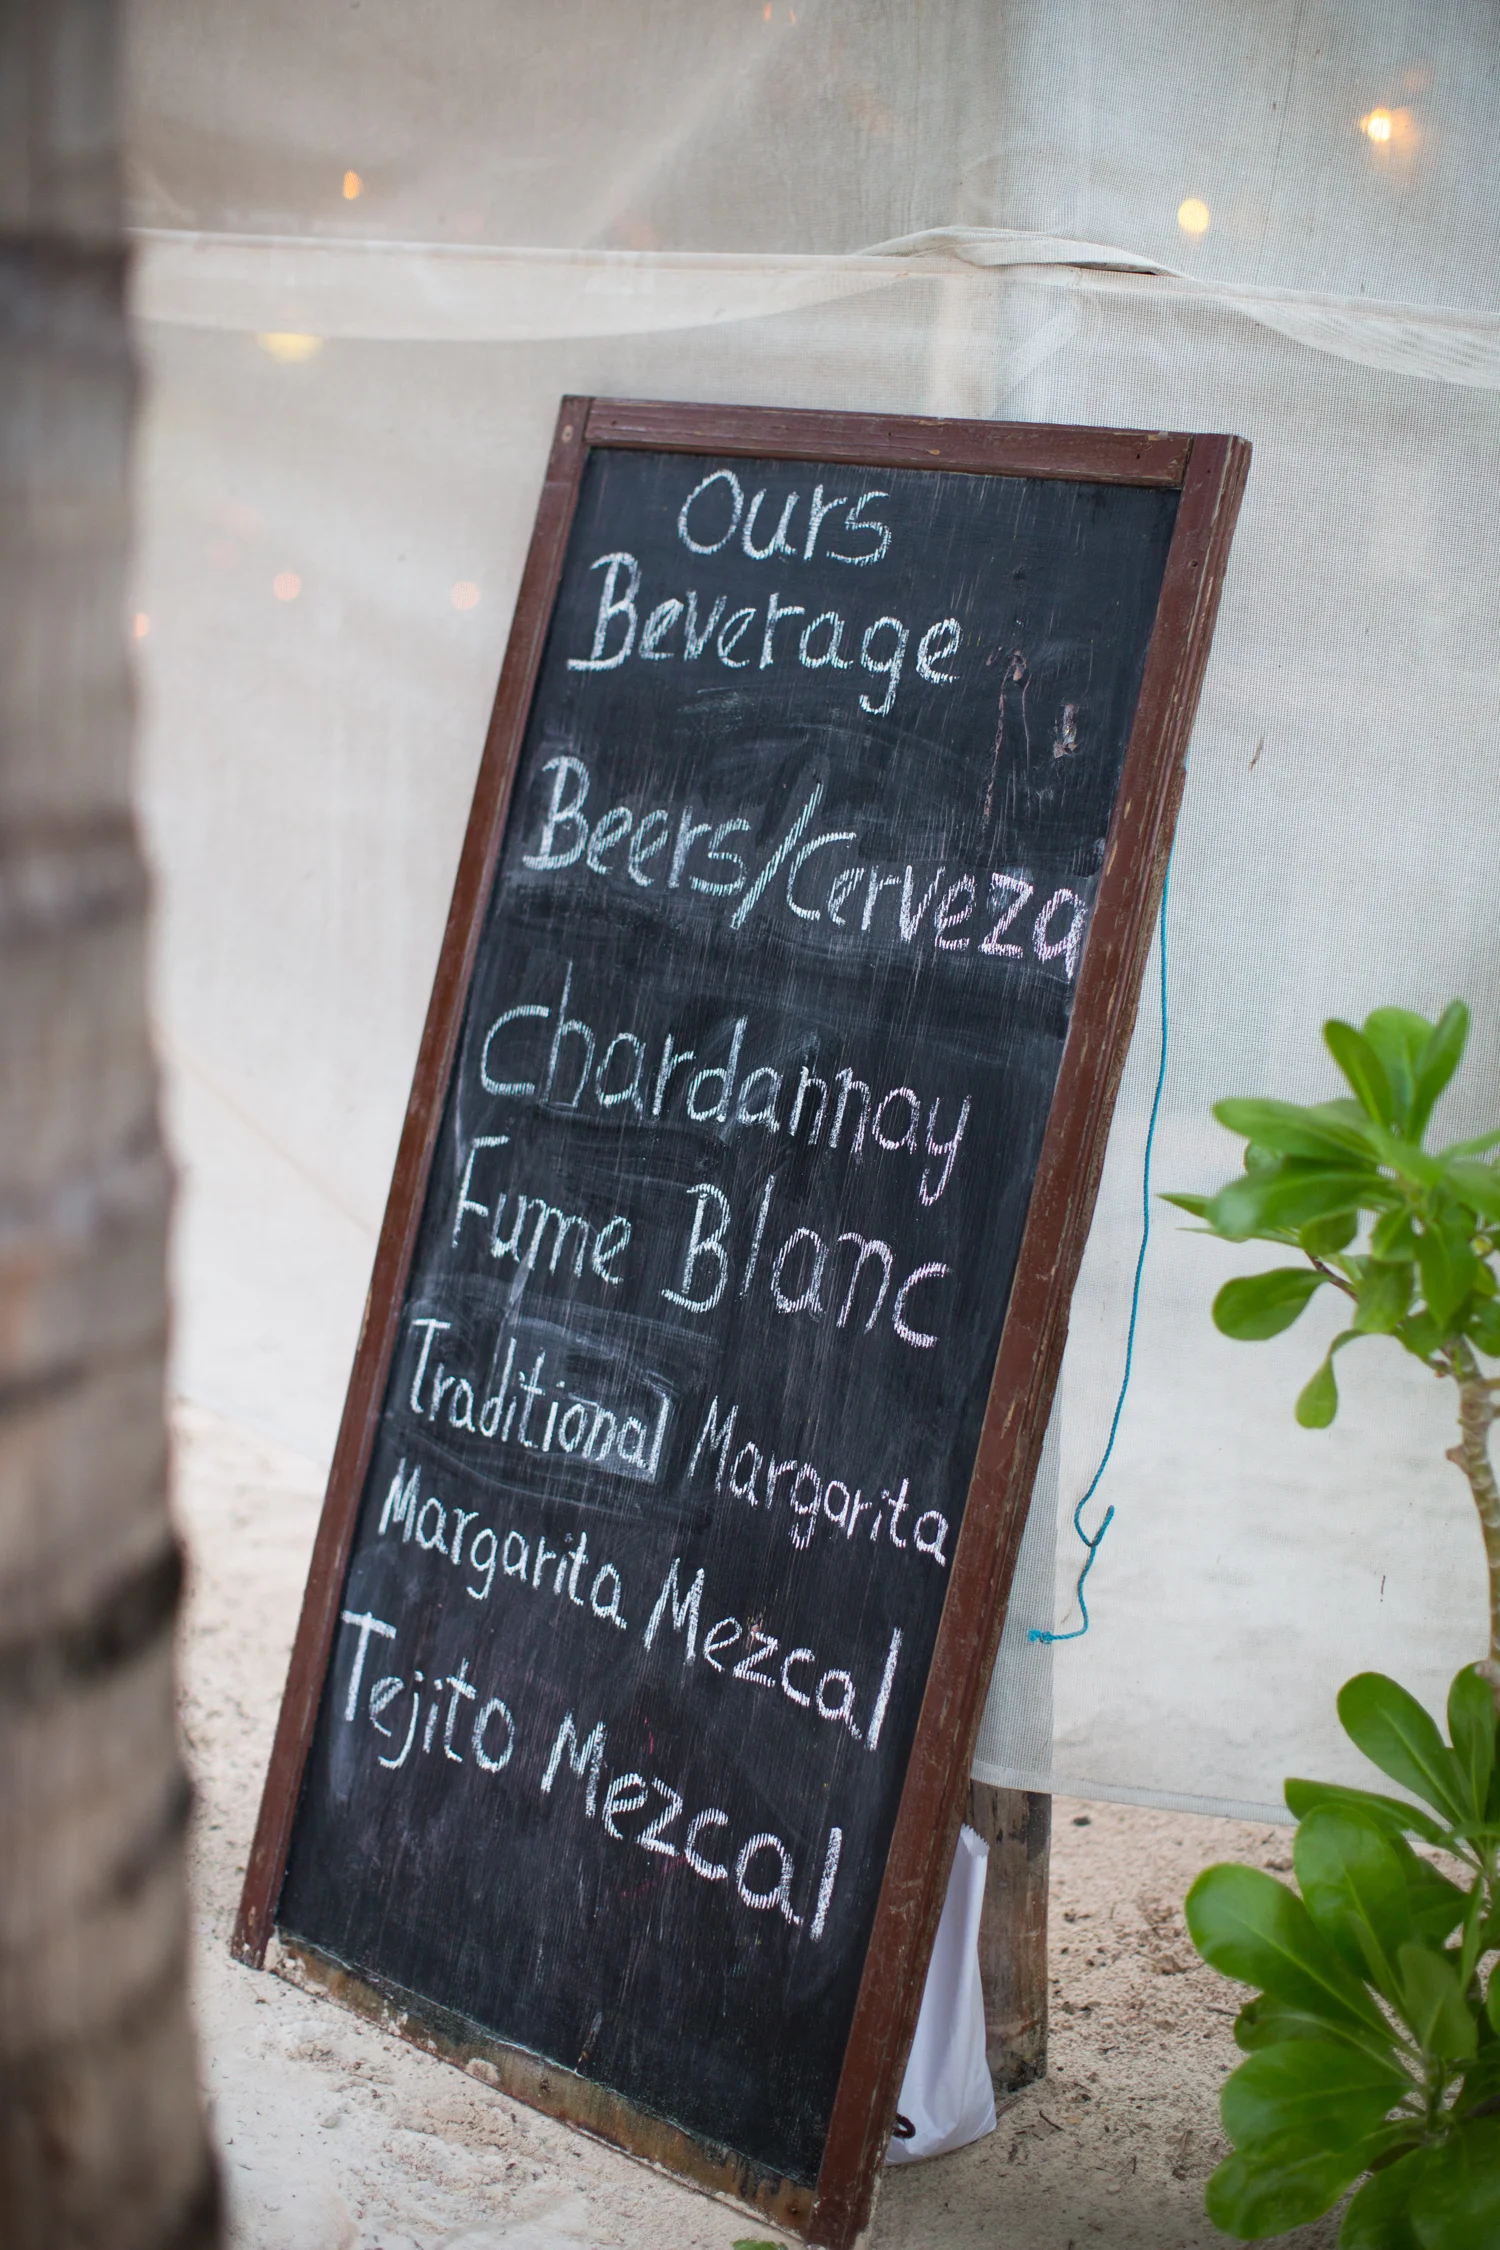 Ours
Beverage
Beers/Cerveza
Chardannay
Fume Blanc
Traditional Margarita
Margarita Mezcal
Tejito Mezcal